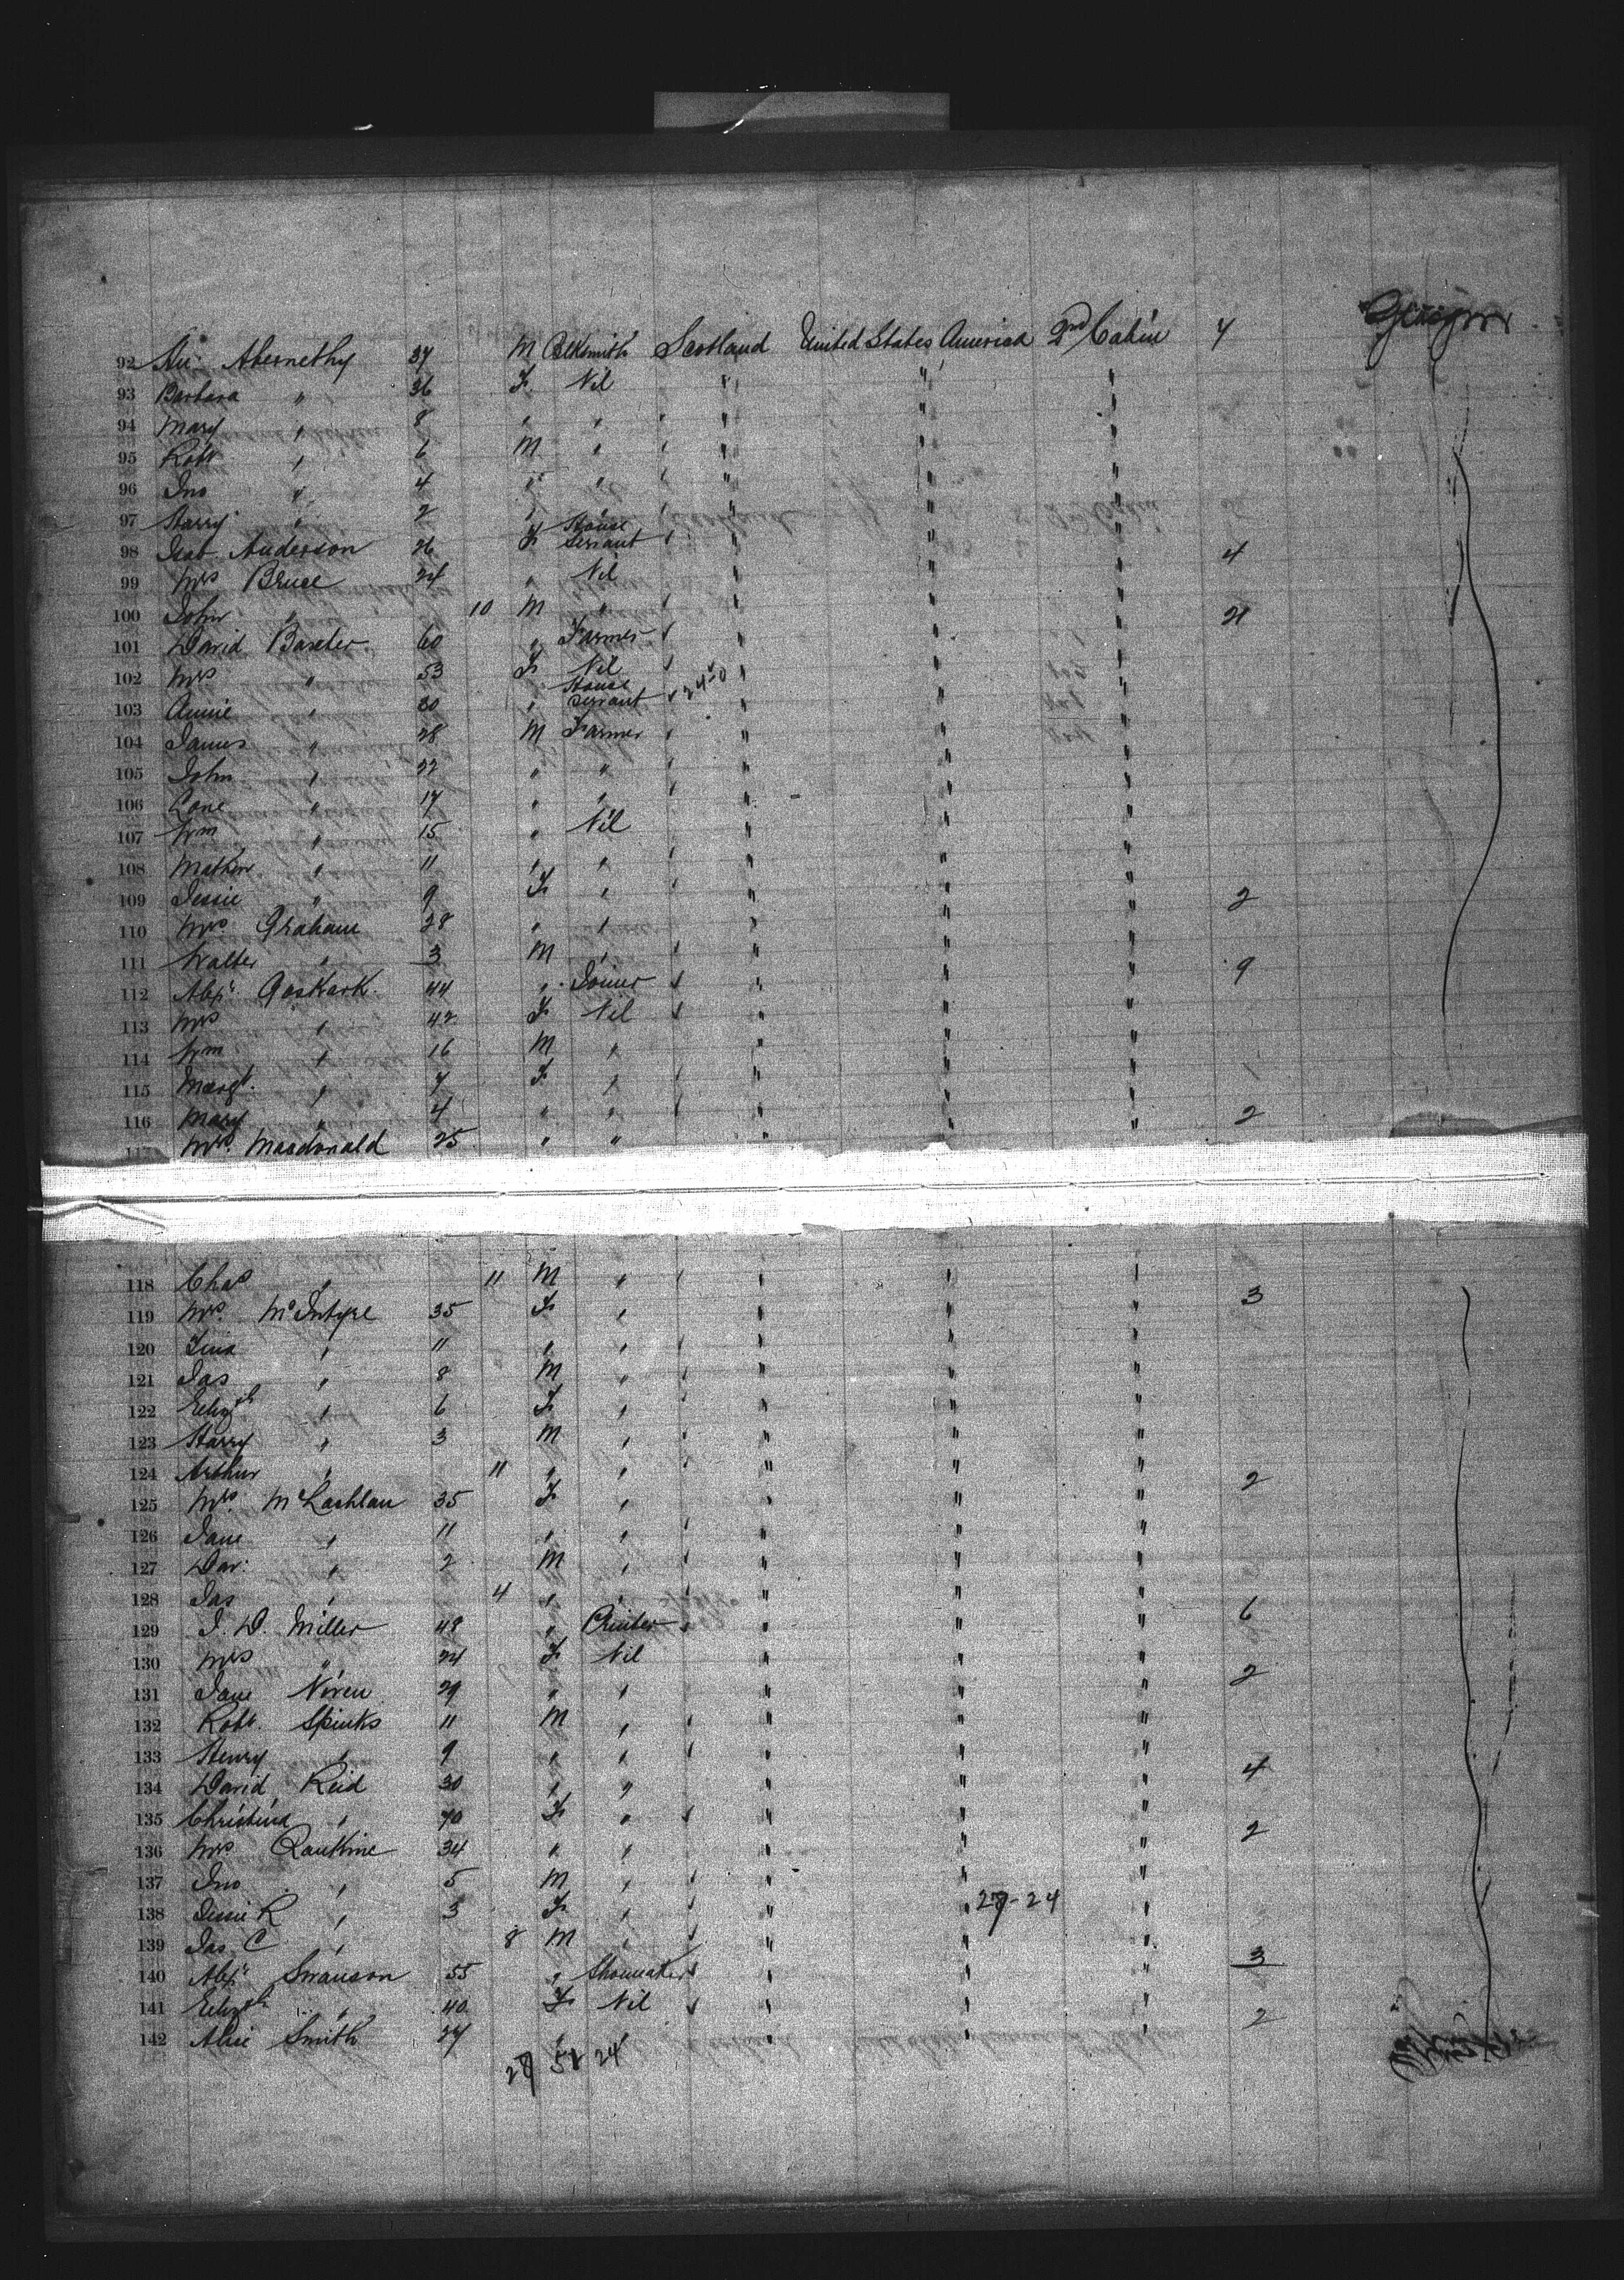 92 Abernethy 34 M Blksmith Scotland United States America 2nd Cabin 7
93 Barbara " 36 F Nil " " "
94 Mary " 8 " " " " "
95 Robt " 6 M " " " "
96 Jno " 4 " " " " "
97 Harry " 2 " " " " "
98 Isab. Anderson 26 F House Servant " " " 4
99 Mrs Bruce 24 " Nil " " "
100 John " 10 M " " " " 21
101 David Baxter 60 " Farmer " " "
102 Mrs " 53 F Nil " " "
103 Annie " 20 " House Servant " " "
104 James " 28 M Farmer " " "
105 John " 22 " " " " "
106 " 17 " " " " "
107 Wm " 15 " Nil " " "
108 Mathew " 11 " " " " "
109 Jessie " 9 F " " " " 2
110 Mrs Graham 28 " " " " "
111 Walter " 3 M " " " " 9
112 Alexr 44 " Joiner " " "
113 Mrs " 42 F Nil " " "
114 Wm " 16 M " " " "
115 Margt. " 7 F " " " "
116 Mary " 4 " " " " " 2
117 Mrs. Macdonald 25 " " " " "
118 Chas " 11 M " " " "
119 Mrs. McIntyre 35 F " " " " 3
120 " 11 " " " " "
121 Jas " 8 M " " " "
122 Elizth " 6 F " " " "
123 Harry " 3 M " " " "
124 Arthur " 11 " " " " " 2
125 Mrs. McLachlan 35 F " " " "
126 Jane " 11 " " " " "
127 Dav: " 2 M " " " "
128 Jas " 4 " " " " "
129 J. D. Miller 48 " Printer " " " 6
130 Mrs " 24 F Nil " " "
131 Jane Niven 29 " " " " " 2
132 Robt. Spinks 11 M " " " "
133 Henry " 9 " " " " "
134 David Reid 30 " " " " " 4
135 Christina " 70 F " " " "
136 Mrs Rankine 34 " " " " " 2
137 Jno " 5 M " " " "
138 Jessie R " 3 F " " " 27-24 "
139 Jas C " 8 M " " " "
140 Alexr Swanson 55 " Shoemaker " " " 3
141 Elizth " 40 F Nil " " "
142 Alice Smith 24 " " " " " 2
27 51 24